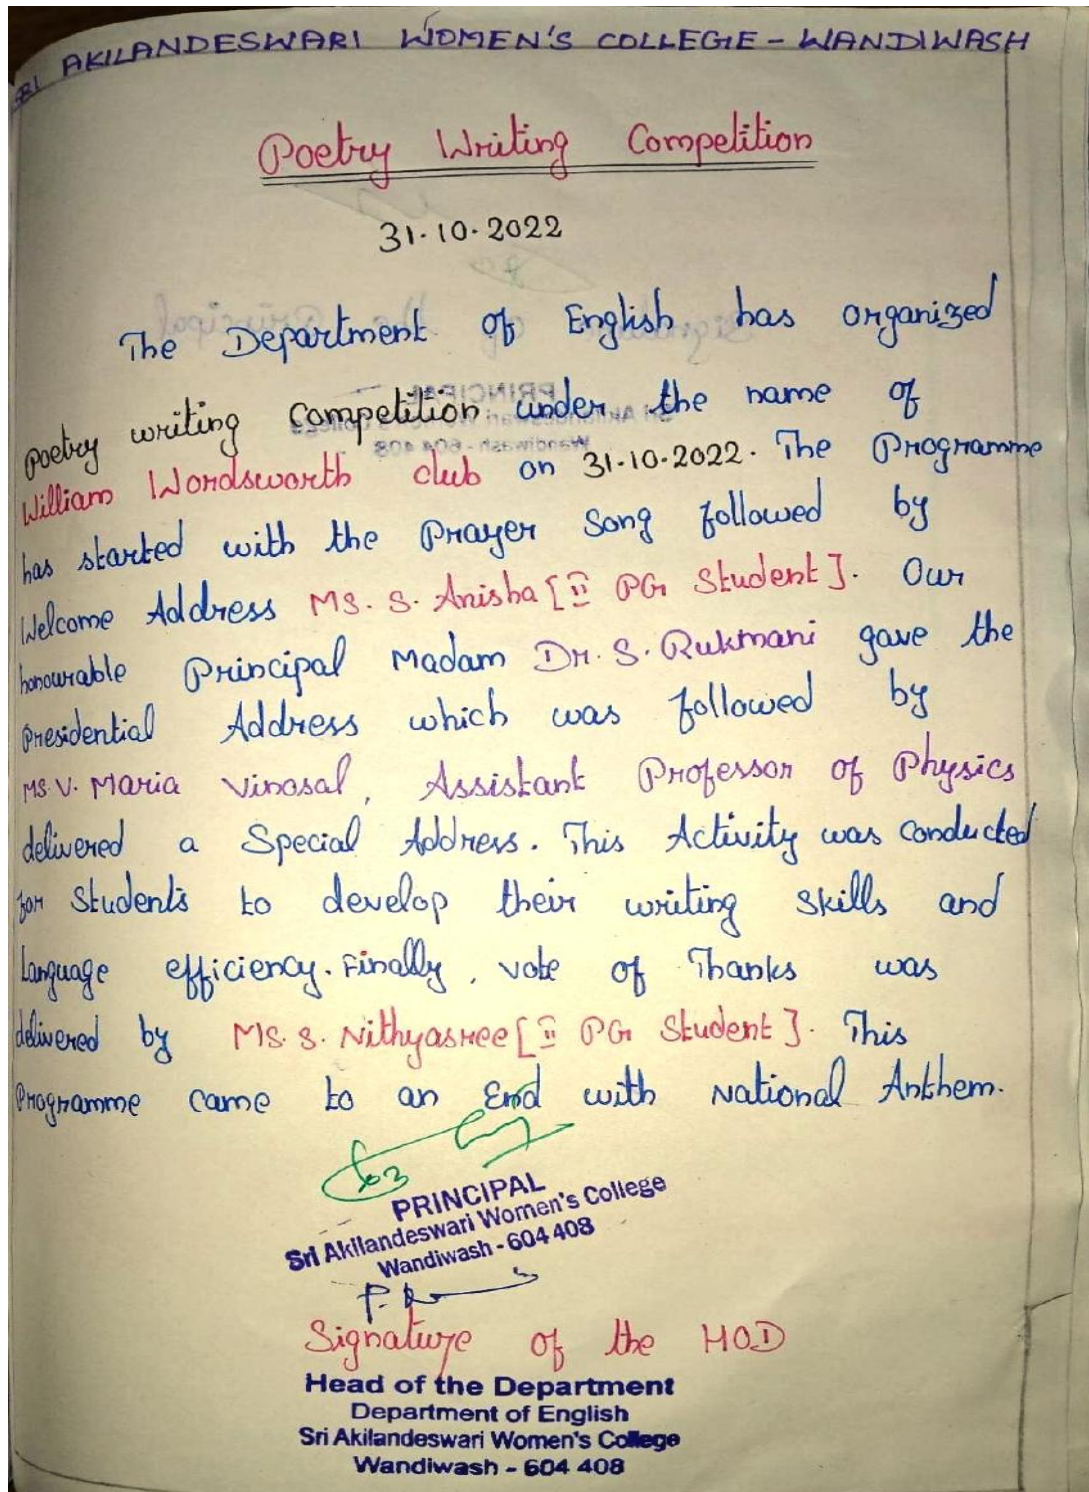 SRI AKILANDESWARI WOMEN'S COLLEGE - WANDIWASH
Poetry Writing Competition
31.10.2022
The Department of English has organized
poetry writing Competition under the name of
William Wordsworth club on 31.10.2022. The Programme
has started with the Prayer Song followed by
Welcome Address MS. S. Anisha [II PG Student]. Our
honourable Principal Madam Dr. S. Rukmani gave the
Presidential Address which was followed by
MS. V. Maria Vinosal, Assistant Professor of Physics
delivered a Special Address. This Activity was conducted
for Students to develop their writing skills and
Language efficiency. Finally, vote of Thanks was
delivered by MS. S. Nithyasree [II PG Student]. This
Programme came to an End with National Anthem.
PRINCIPAL
Sri Akilandeswari Women's College
Wandiwash - 604 408
Signature of the HOD
Head of the Department
Department of English
Sri Akilandeswari Women's College
Wandiwash - 604 408